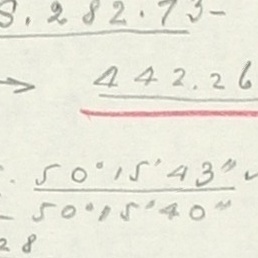 8.282.73-
→ 442.26
50°15'43"
50°15'40"
28